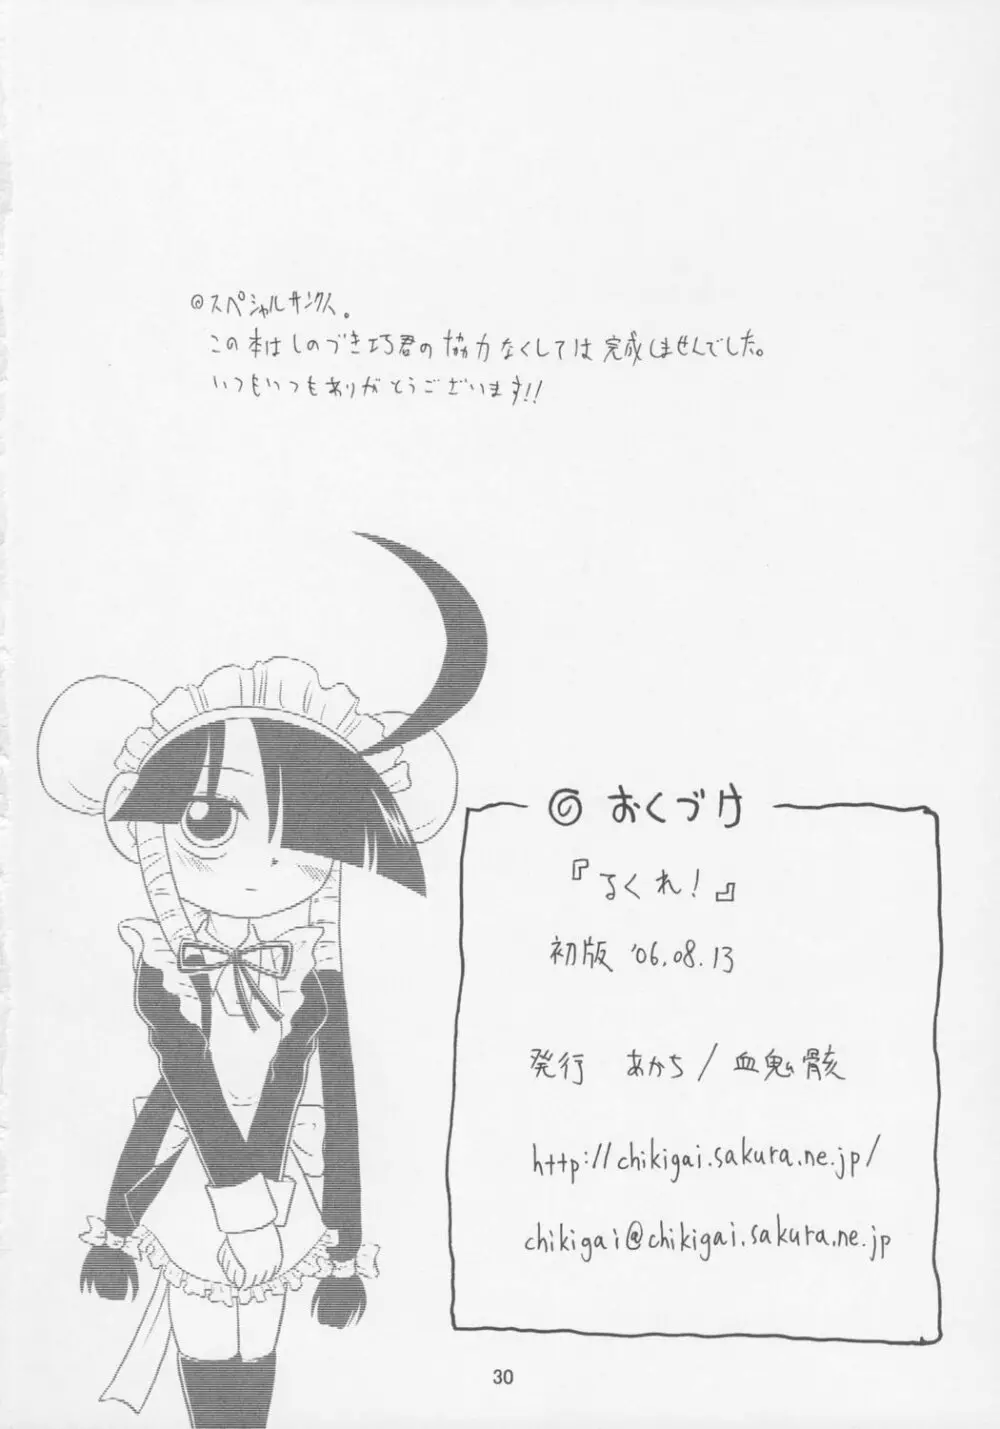 ◎スペシャルサンクス。
この本はしのづき巧君の協力なくしては完成しませんでした。
いつもいつもありがとうございます!!
◎おくづけ
『るくれ!』
初版 '06.08.13
発行 あかち/血鬼骸
http://chikigai.sakura.ne.jp/
chikigai@chikigai.sakura.ne.jp
30